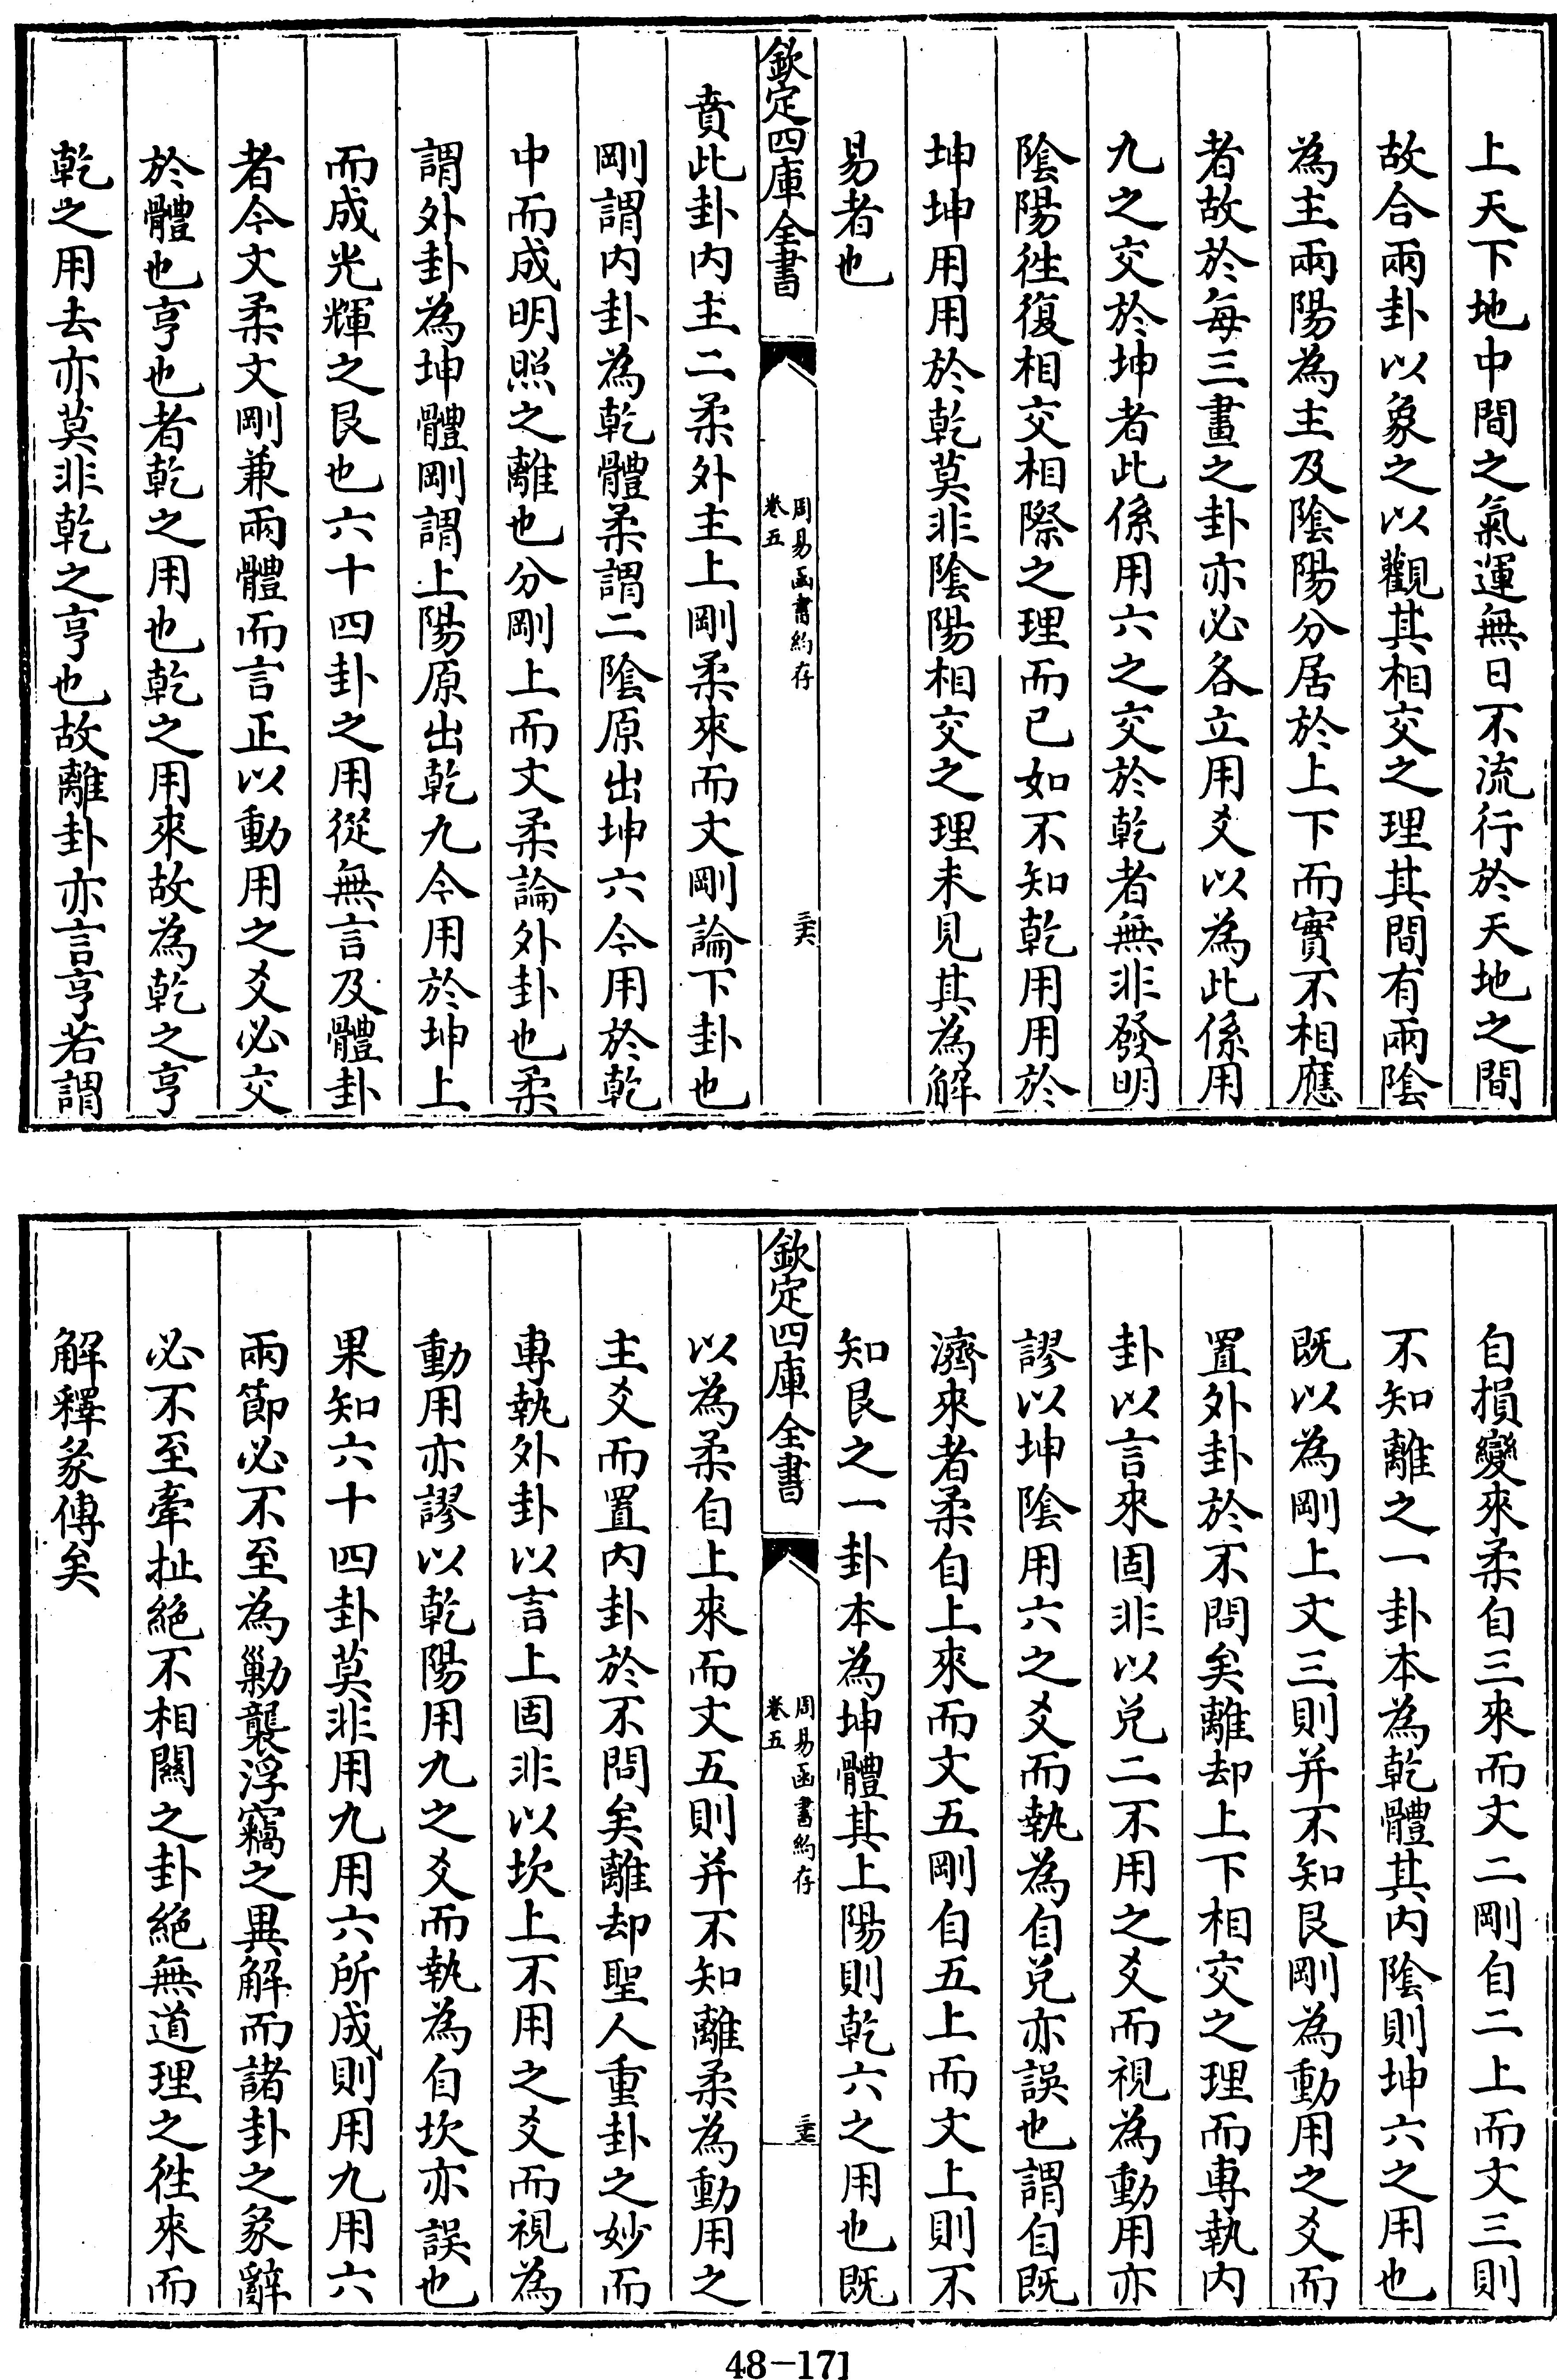 上天下地中間之氣運無日不流行於天地之間
故合兩卦以象之以觀其相交之理其間有兩陰
為主兩陽為主及陰陽分居於上下而實不相應
者故於每三畫之卦亦必各立用爻以為此係用
九之交於坤者此係用六之交於乾者無非發明
陰陽徃復相交相際之理而已如不知乾用用於
坤坤用用於乾莫非陰陽相交之理未見其為解
易者也
欽定四庫全書
周易函書約存
卷五
三六
賁此卦内主二柔外主上剛柔來而文剛論下卦也
剛謂内卦為乾體柔謂二陰原出坤六今用於乾
中而成明照之離也分剛上而文柔論外卦也柔
謂外卦為坤體剛謂上陽原出乾九今用於坤上
而成光輝之艮也六十四卦之用從無言及體卦
者今文柔文剛兼兩體而言正以動用之爻必交
於體也亨也者乾之用也乾之用來故為乾之亨
乾之用去亦莫非乾之亨也故離卦亦言亨若謂
自損變來柔自三來而文二剛自二上而文三則
不知離之一卦本為乾體其内陰則坤六之用也
既以為剛上文三則并不知艮剛為動用之爻而
置外卦於不問矣離却上下相交之理而專執内
卦以言來固非以兌二不用之爻而視為動用亦
謬以坤陰用六之爻而執為自兌亦誤也謂自既
濟來者柔自上來而文五剛自五上而文上則不
知艮之一卦本為坤體其上陽則乾六之用也既
欽定四庫全書
周易函書約存
卷五
三七
以為柔自上來而文五則并不知離柔為動用之
主爻而置内卦於不問矣離却聖人重卦之妙而
專執外卦以言上固非以坎上不用之爻而視為
動用亦謬以乾陽用九之爻而執為自坎亦誤也
果知六十四卦莫非用九用六所成則用九用六
兩節必不至為勦襲浮竊之異解而諸卦之彖辭
必不至牽扯絶不相關之卦絶無道理之徃來而
解釋彖傳矣
48-171